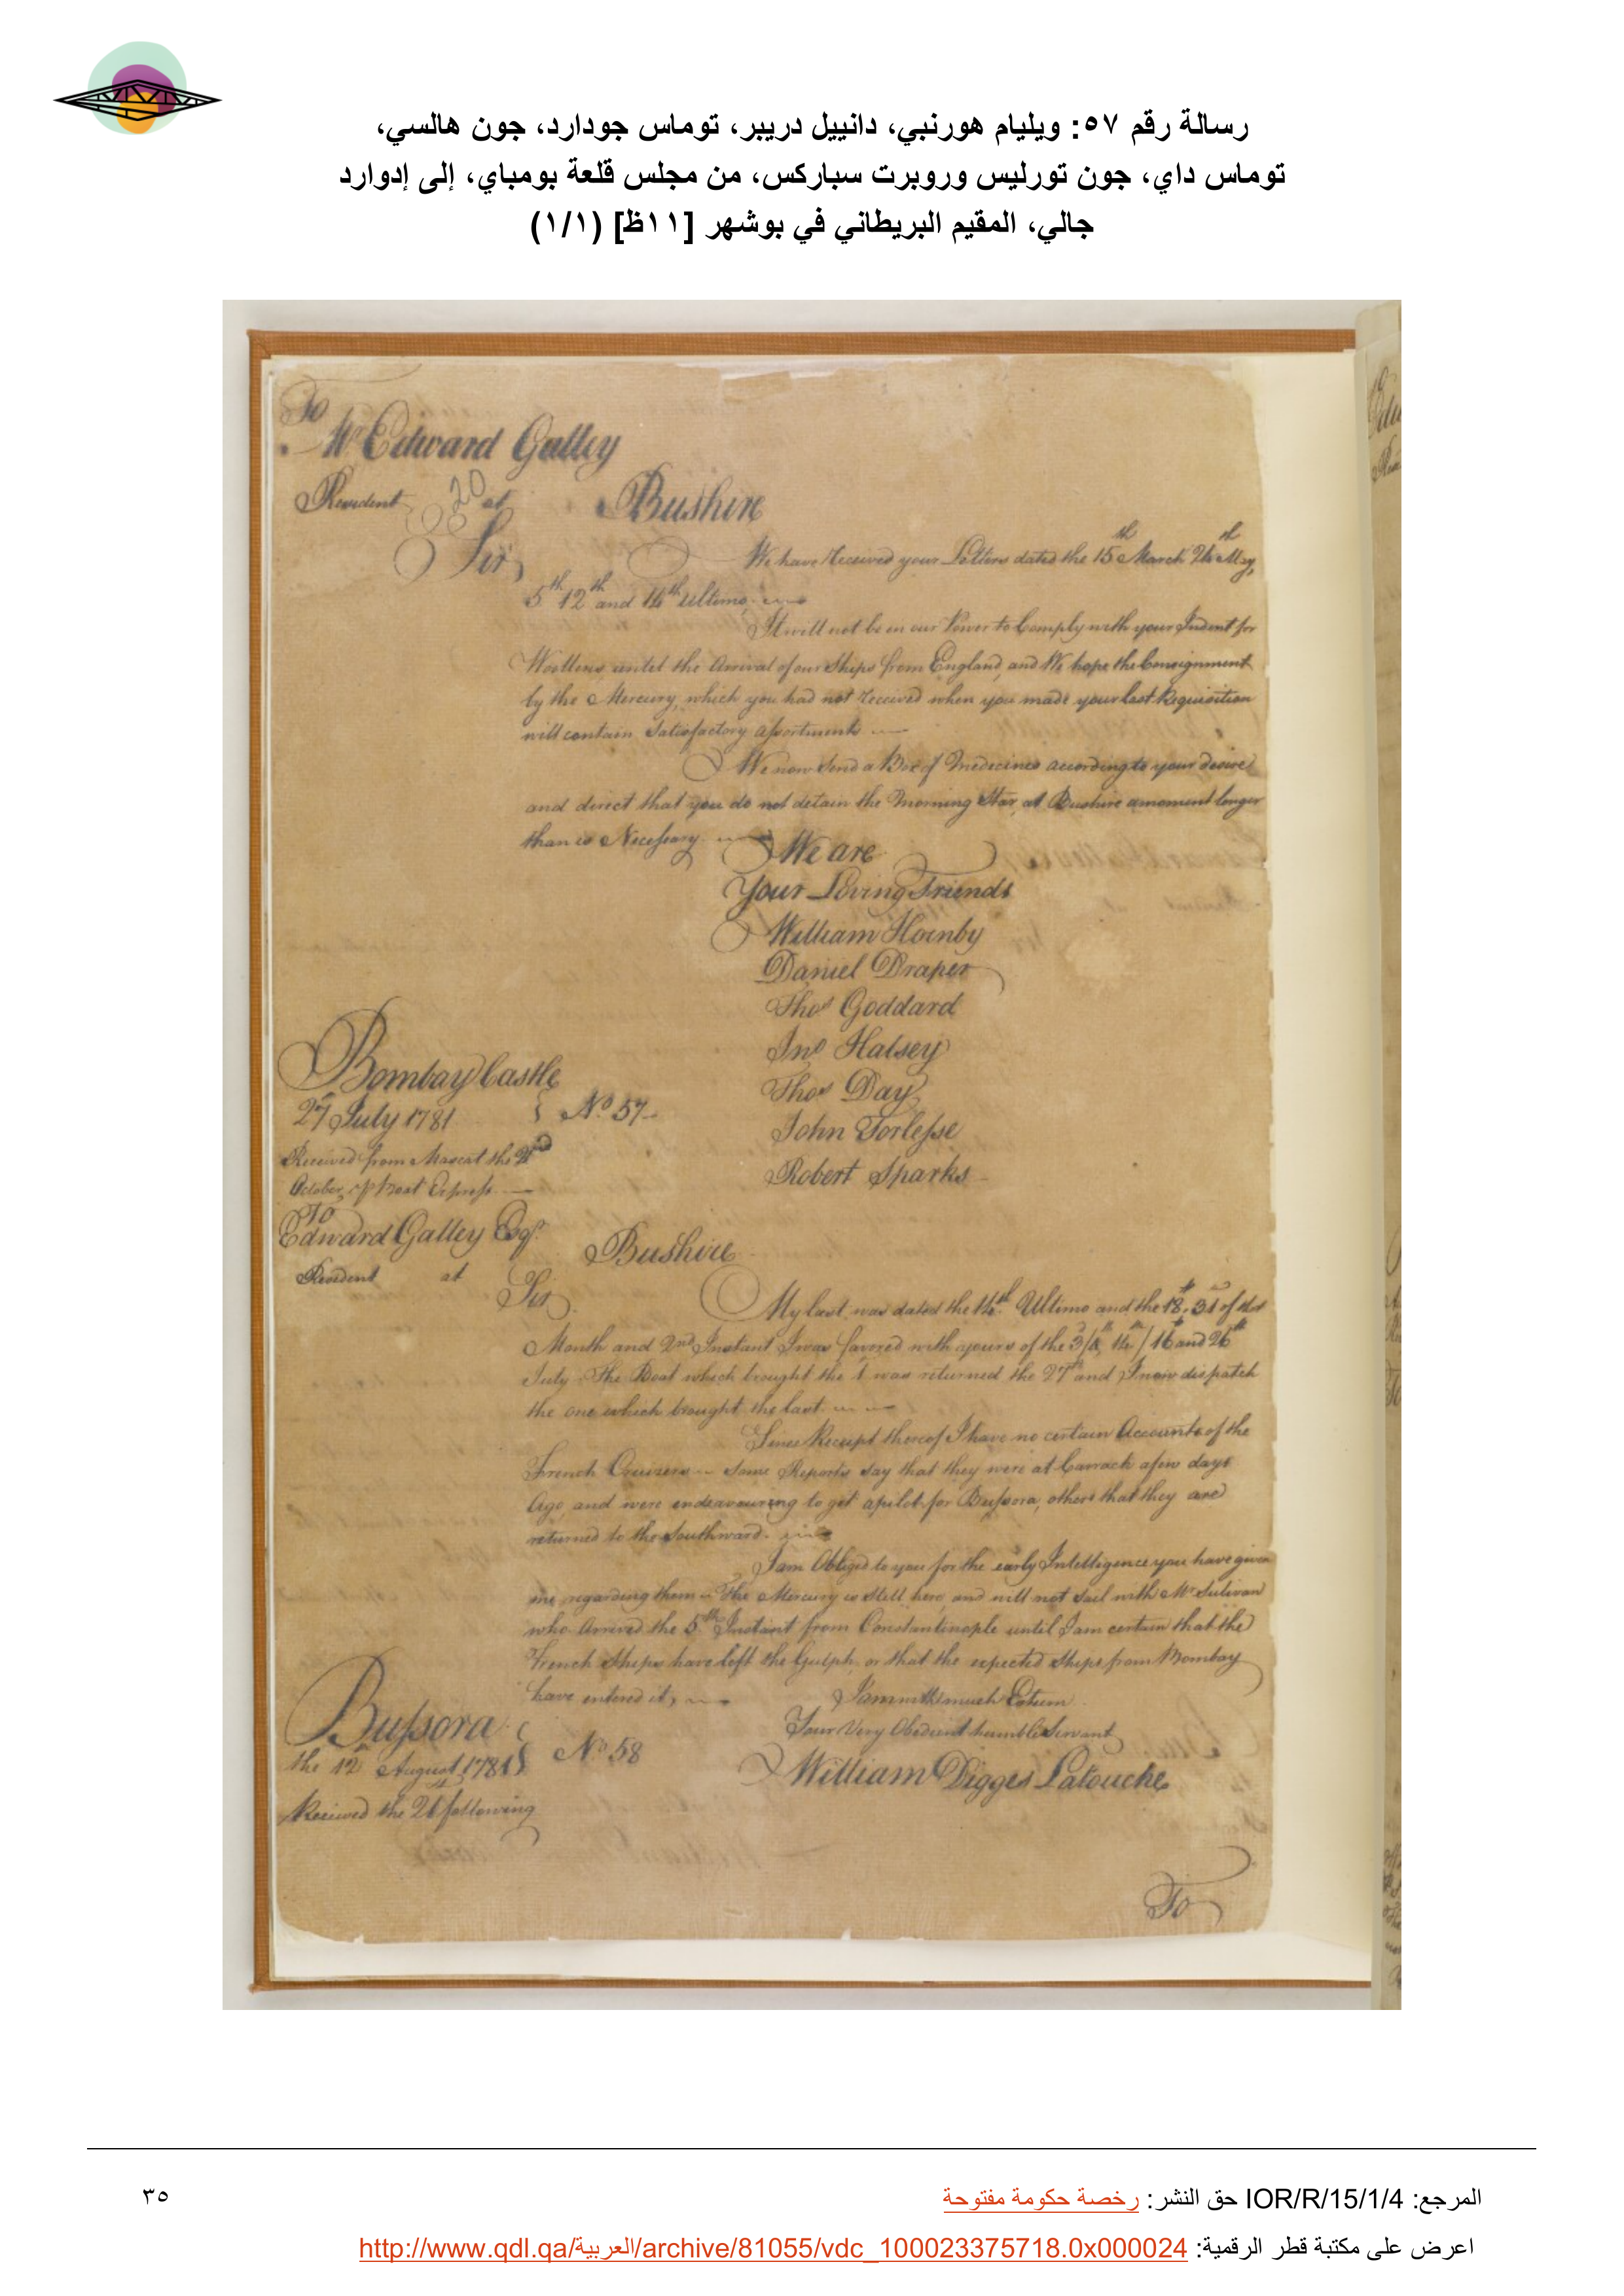 رسالة رقم ٥٧: ويليام هورنبي، دانييل دريبر، توماس جودارد، جون هالسي،
توماس داي، جون تورليس وروبرت سباركس، من مجلس قلعة بومباي، إلى إدوارد
جالي، المقيم البريطاني في بوشهر [١١ظ] (١/١)
To
Mr Edward Galley
Resident at Bushire
20
Sir,
We have Received your Letters dated the 15th March 24th May,
5th 12th and 14th Ultimo.
It will not be in our Power to Comply with your Indent for
Woollens until the Arrival of our Ships from England, and We hope the Consignment
by the Mercury, which you had not received when you made your last Requisition
will contain Satisfactory assortments
We now send a Box of Medecines according to your desire
and direct that you do not detain the Morning Star, at Bushire a moment longer
than is Necessary
We are
Your Loving Friends
William Hornby
Daniel Draper
Thos Goddard
Jno Halsey
Thos Day
John Torlesse
Robert Sparks
Bombay Castle
27 July 1781
No 57
Received from Mascat the 2nd
October, p Boat Express
To
Edward Galley Esqr
Resident at Bushire
Sir
My last was dated the 14th Ultimo and the 18, 31 of that
Month and 2nd Instant I was favored with yours of the 3/8, 14/16 and 26th
July. The Boat which brought the 1 was returned the 27th and I now dispatch
the one which brought the last.
Since Receipt thereof I have no certain Accounts of the
French Cruizers some Reports say that they were at Carrack a few days
Ago, and were endeavouring to get a pilot for Bussora, others that they are
returned to the Southward.
I am Obliged to you for the early Intelligence you have given
me regarding them The Mercury is still here, and will not sail with Mr Sulivan
who Arrived the 5th Instant from Constantinople until I am certain that the
French Ships have left the Gulph, or that the expected Ships from Bombay
have entered it,
I am with much Esteem
Your Very Obedient humble Servant
William Digges Latouche
Bussora
the 12 August 1781
No 58
Received the 26 following
To
المرجع: IOR/R/15/1/4 حق النشر: رخصة حكومة مفتوحة
٣٥
اعرض على مكتبة قطر الرقمية: http://www.qdl.qa/العربية/archive/81055/vdc_100023375718.0x000024